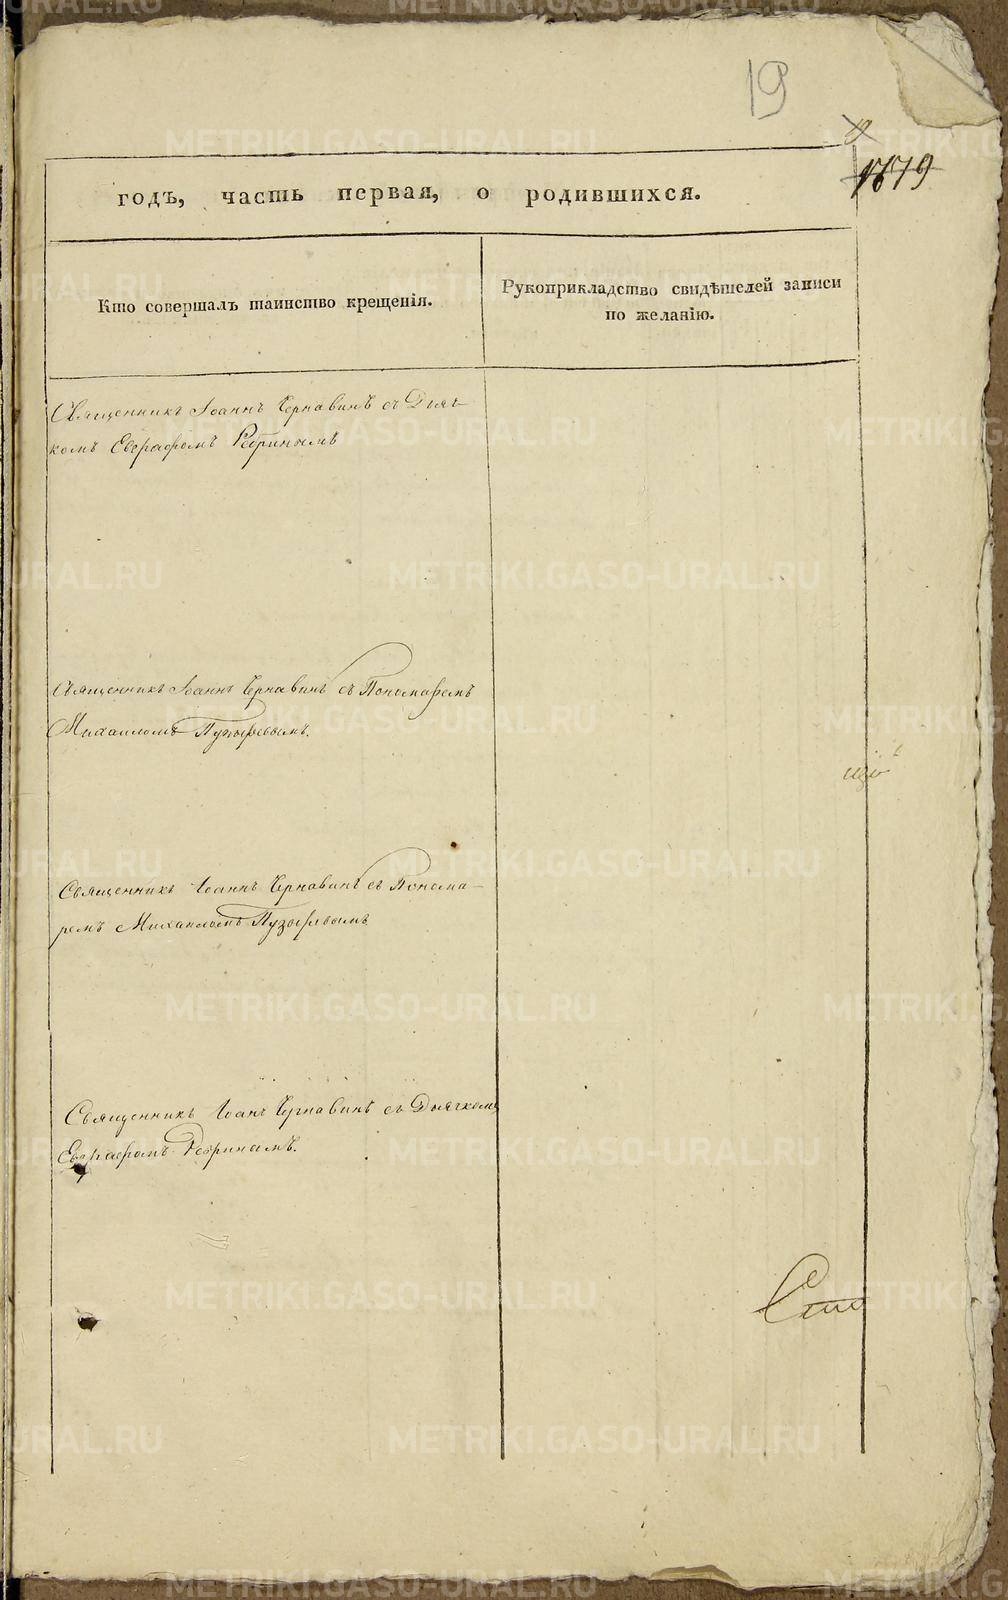 19
1679
годъ, часть первая, о родившихся.
Кто совершалъ таинство крещенія.
Рукоприкладство свидѣтелей записи
по желанію.
Священникъ Іоаннъ Чернавинъ съ Дьяч-
комъ Евграфомъ
Священникъ Іоаннъ Чернавинъ съ Пономаремъ
Михаиломъ Пузыревымъ.
Священникъ Іоаннъ Чернавинъ съ Понома-
ремъ Михаиломъ Пузыревымъ
Священникъ Іоаннъ Чернавинъ съ Дьячкомъ
Евграфомъ
METRIKI.GASO-URAL.RU